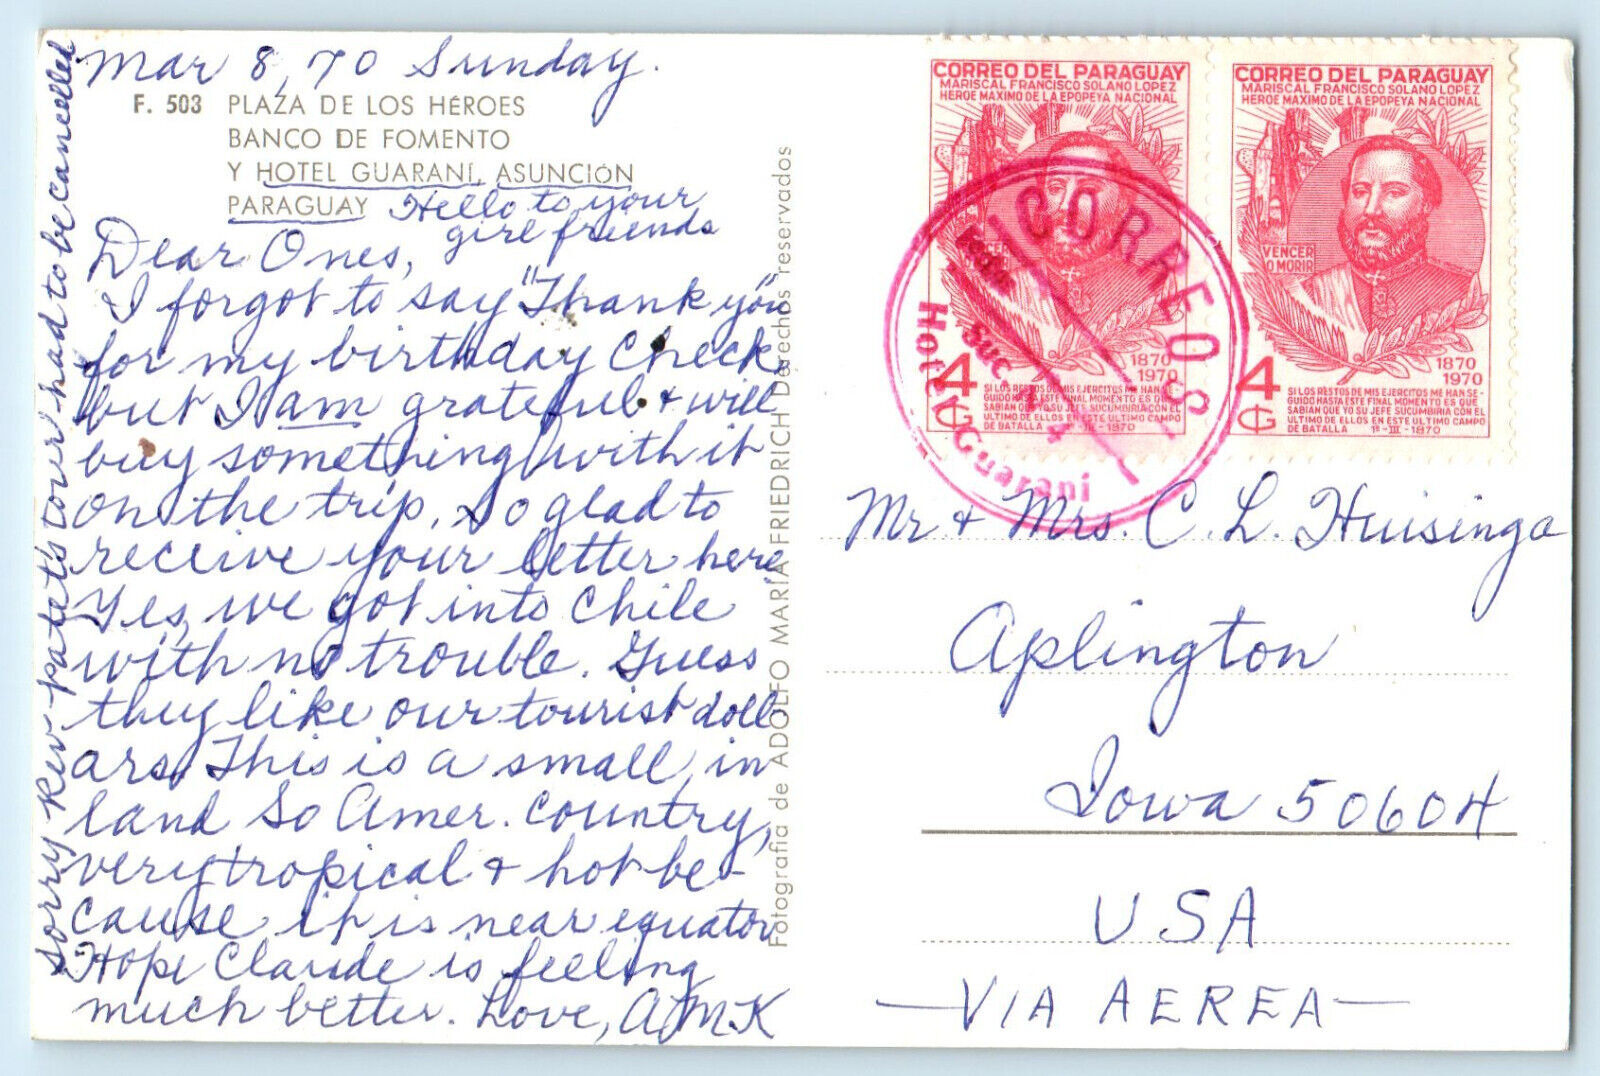 Mar 8, 70 Sunday.
F. 503 PLAZA DE LOS HÉROES
BANCO DE FOMENTO
Y HOTEL GUARANÍ, ASUNCIÓN
PARAGUAY
Hello to your
girl friends
Dear Ones,
I forgot to say "Thank you"
for my birthday check
but I am grateful & will
buy something with it
on the trip. So glad to
receive your letter here
Yes, we got into Chile
with no trouble. Guess
they like our tourist doll
ars. This is a small, in
land So Amer. country,
very tropical & hot be-
cause it is near equator
Hope Claude is feeling
much better. Love, AMK
Sorry Rev. Patet's tour had to be cancelled
Fotografía de ADOLFO MARÍA FRIEDRICH Derechos reservados
CORREO DEL PARAGUAY
MARISCAL FRANCISCO SOLANO LOPEZ
HEROE MAXIMO DE LA EPOPEYA NACIONAL
VENCER
O MORIR
1870
1970
4
G
SI LOS RESTOS DE MIS EJERCITOS ME HAN SE-
GUIDO HASTA ESTE FINAL MOMENTO ES QUE
SABIAN QUE YO SU JEFE SUCUMBIRIA CON EL
ULTIMO DE ELLOS EN ESTE ULTIMO CAMPO
DE BATALLA 1º-III-1870
CORREO DEL PARAGUAY
MARISCAL FRANCISCO SOLANO LOPEZ
HEROE MAXIMO DE LA EPOPEYA NACIONAL
VENCER
O MORIR
1870
1970
4
G
SI LOS RESTOS DE MIS EJERCITOS ME HAN SE-
GUIDO HASTA ESTE FINAL MOMENTO ES QUE
SABIAN QUE YO SU JEFE SUCUMBIRIA CON EL
ULTIMO DE ELLOS EN ESTE ULTIMO CAMPO
DE BATALLA 1º-III-1870
CORREOS
Suc
Hotel Guarani
Mr & Mrs. C. L. Huisinga
Aplington
Iowa 50604
USA
—VIA AEREA—